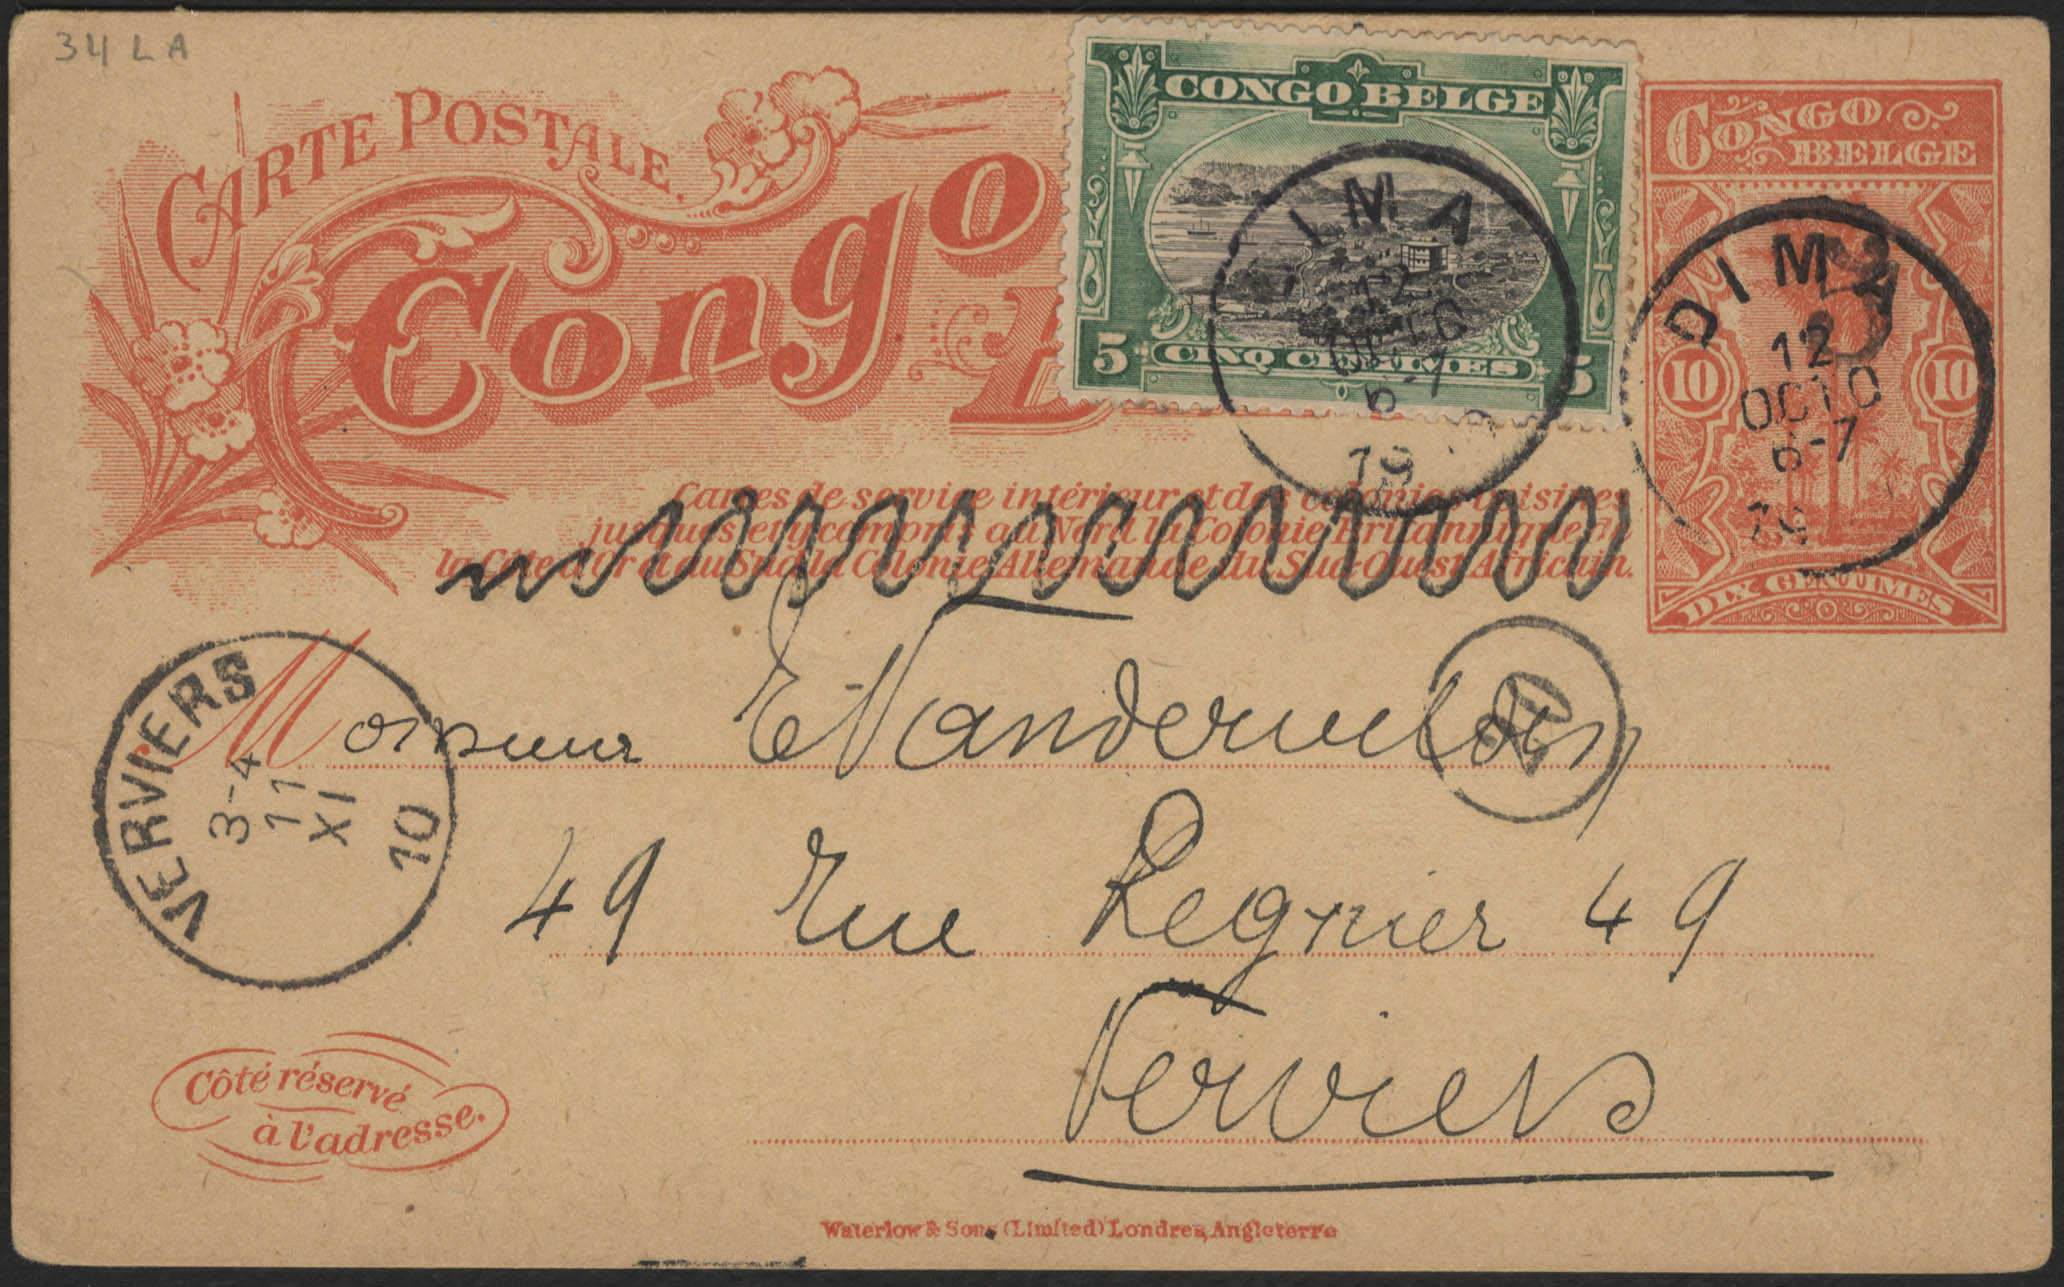 34 LA
CARTE POSTALE.
Congo
CONGO BELGE
5 CINQ CENTIMES 5
CONGO
BELGE
10 10
DIX CENTIMES
DIMA
12
OCTO
6-7
DIMA
12
OCTO
6-7
19
Cartes de service intérieur et des colonies voisines
jusques et y compris au Nord la Colonie Britannique de
la Côte d'Or et au Sud la Colonie Allemande du Sud-Ouest Africain.
VERVIERS
3-4
11
XI
10
Monsieur E Vandervelden
49 rue Regnier 49
Verviers
Côté réservé
à l'adresse.
Waterlow & Sons (Limited) Londres, Angleterre